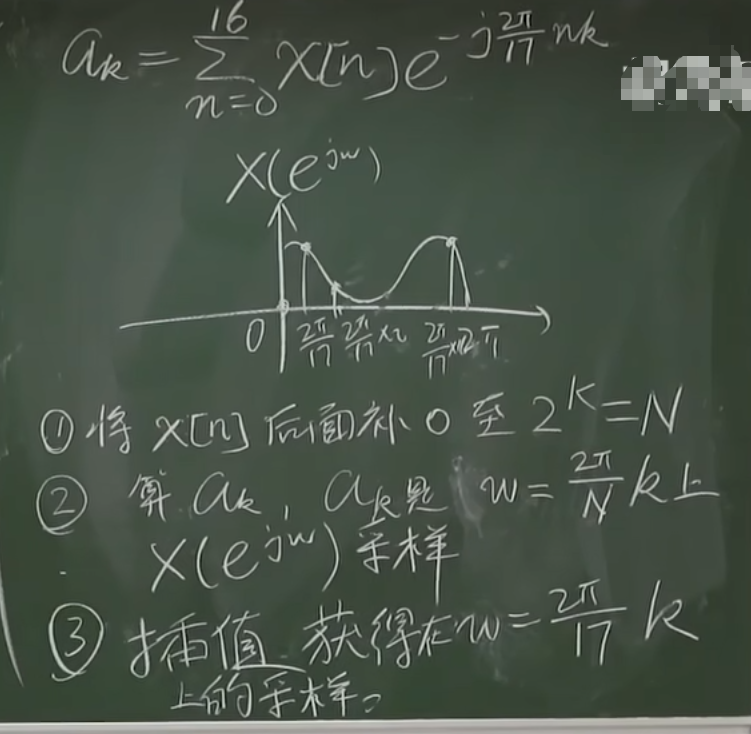 a_k = \sum_{n=0}^{16} x[n] e^{-j\frac{2π}{17}nk}
X(e^{jw})
0 \frac{2π}{17} \frac{2π}{17}×2 \frac{2π}{17} 2π
① 将 x[n] 后面补 0 至 2^K = N
② 算 a_k, a_k是 w = \frac{2π}{N} k上
X(e^{jw}) 采样
③ 插值 获得在w = \frac{2π}{17} k
上的采样。